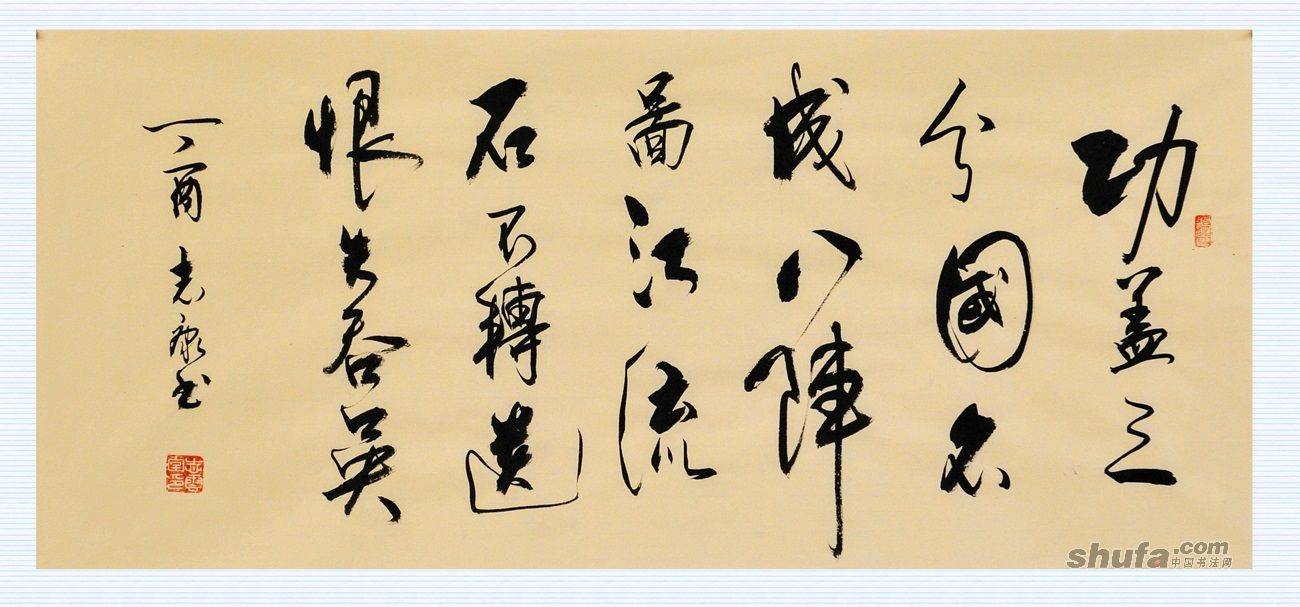 功盖三
分國名
成八陣
啚江流
石不轉遺
恨失吞吴
丁酉 志康书
shufa.com
中国书法网